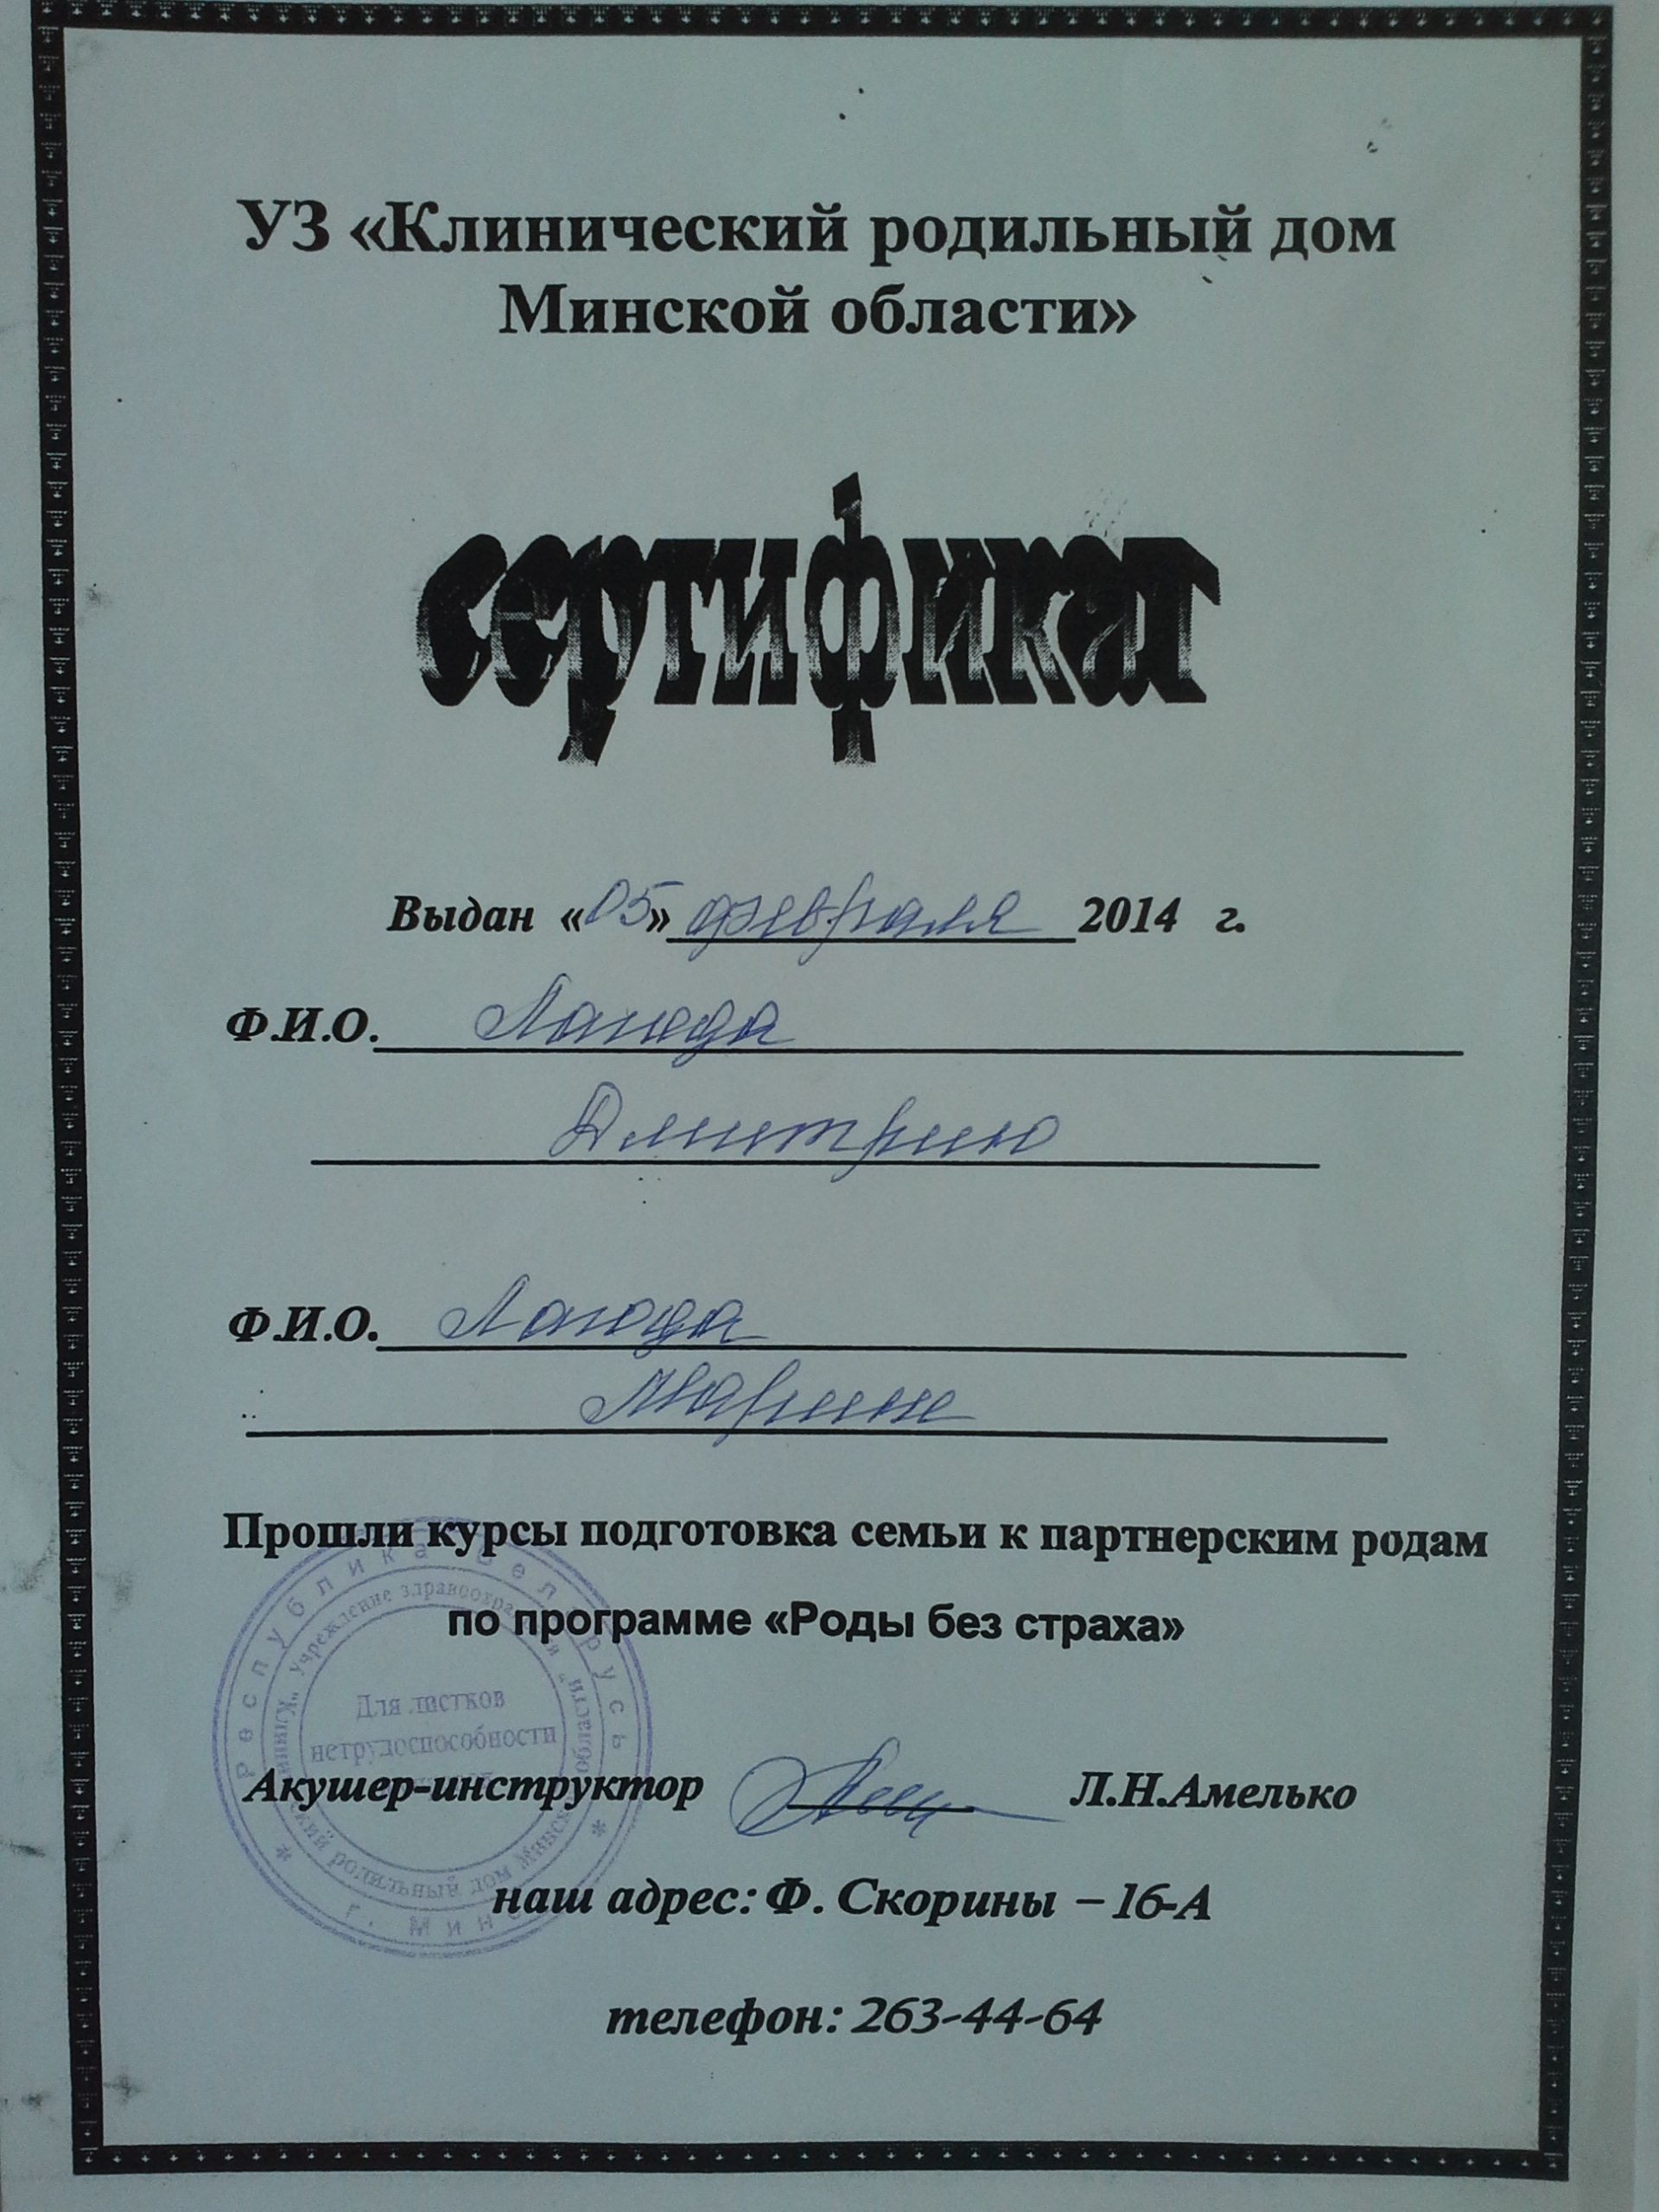 УЗ «Клинический родильный дом
Минской области»
сертификат
Выдан «05» февраля 2014 г.
Ф.И.О. Лагода
Дмитрию
Ф.И.О. Лагода
Марине
Прошли курсы подготовка семьи к партнерским родам
по программе «Роды без страха»
Республика Беларусь
Учреждение здравоохранения "Клинический родильный дом Минской области"
Для листков
нетрудоспособности
г. Минск
Акушер-инструктор Л.Н.Амелько
наш адрес: Ф. Скорины – 16-А
телефон: 263-44-64